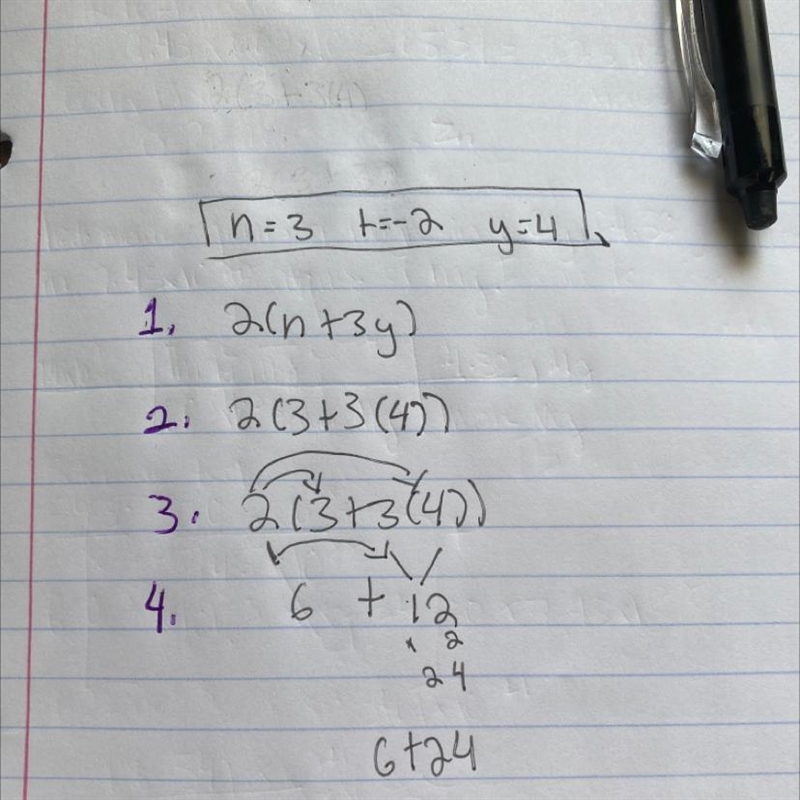 n=3 t=-2 y=4
1. 2(n+3y)
2. 2(3+3(4))
3. 2(3+3(4))
4. 6 + 12
x 2
24
6+24